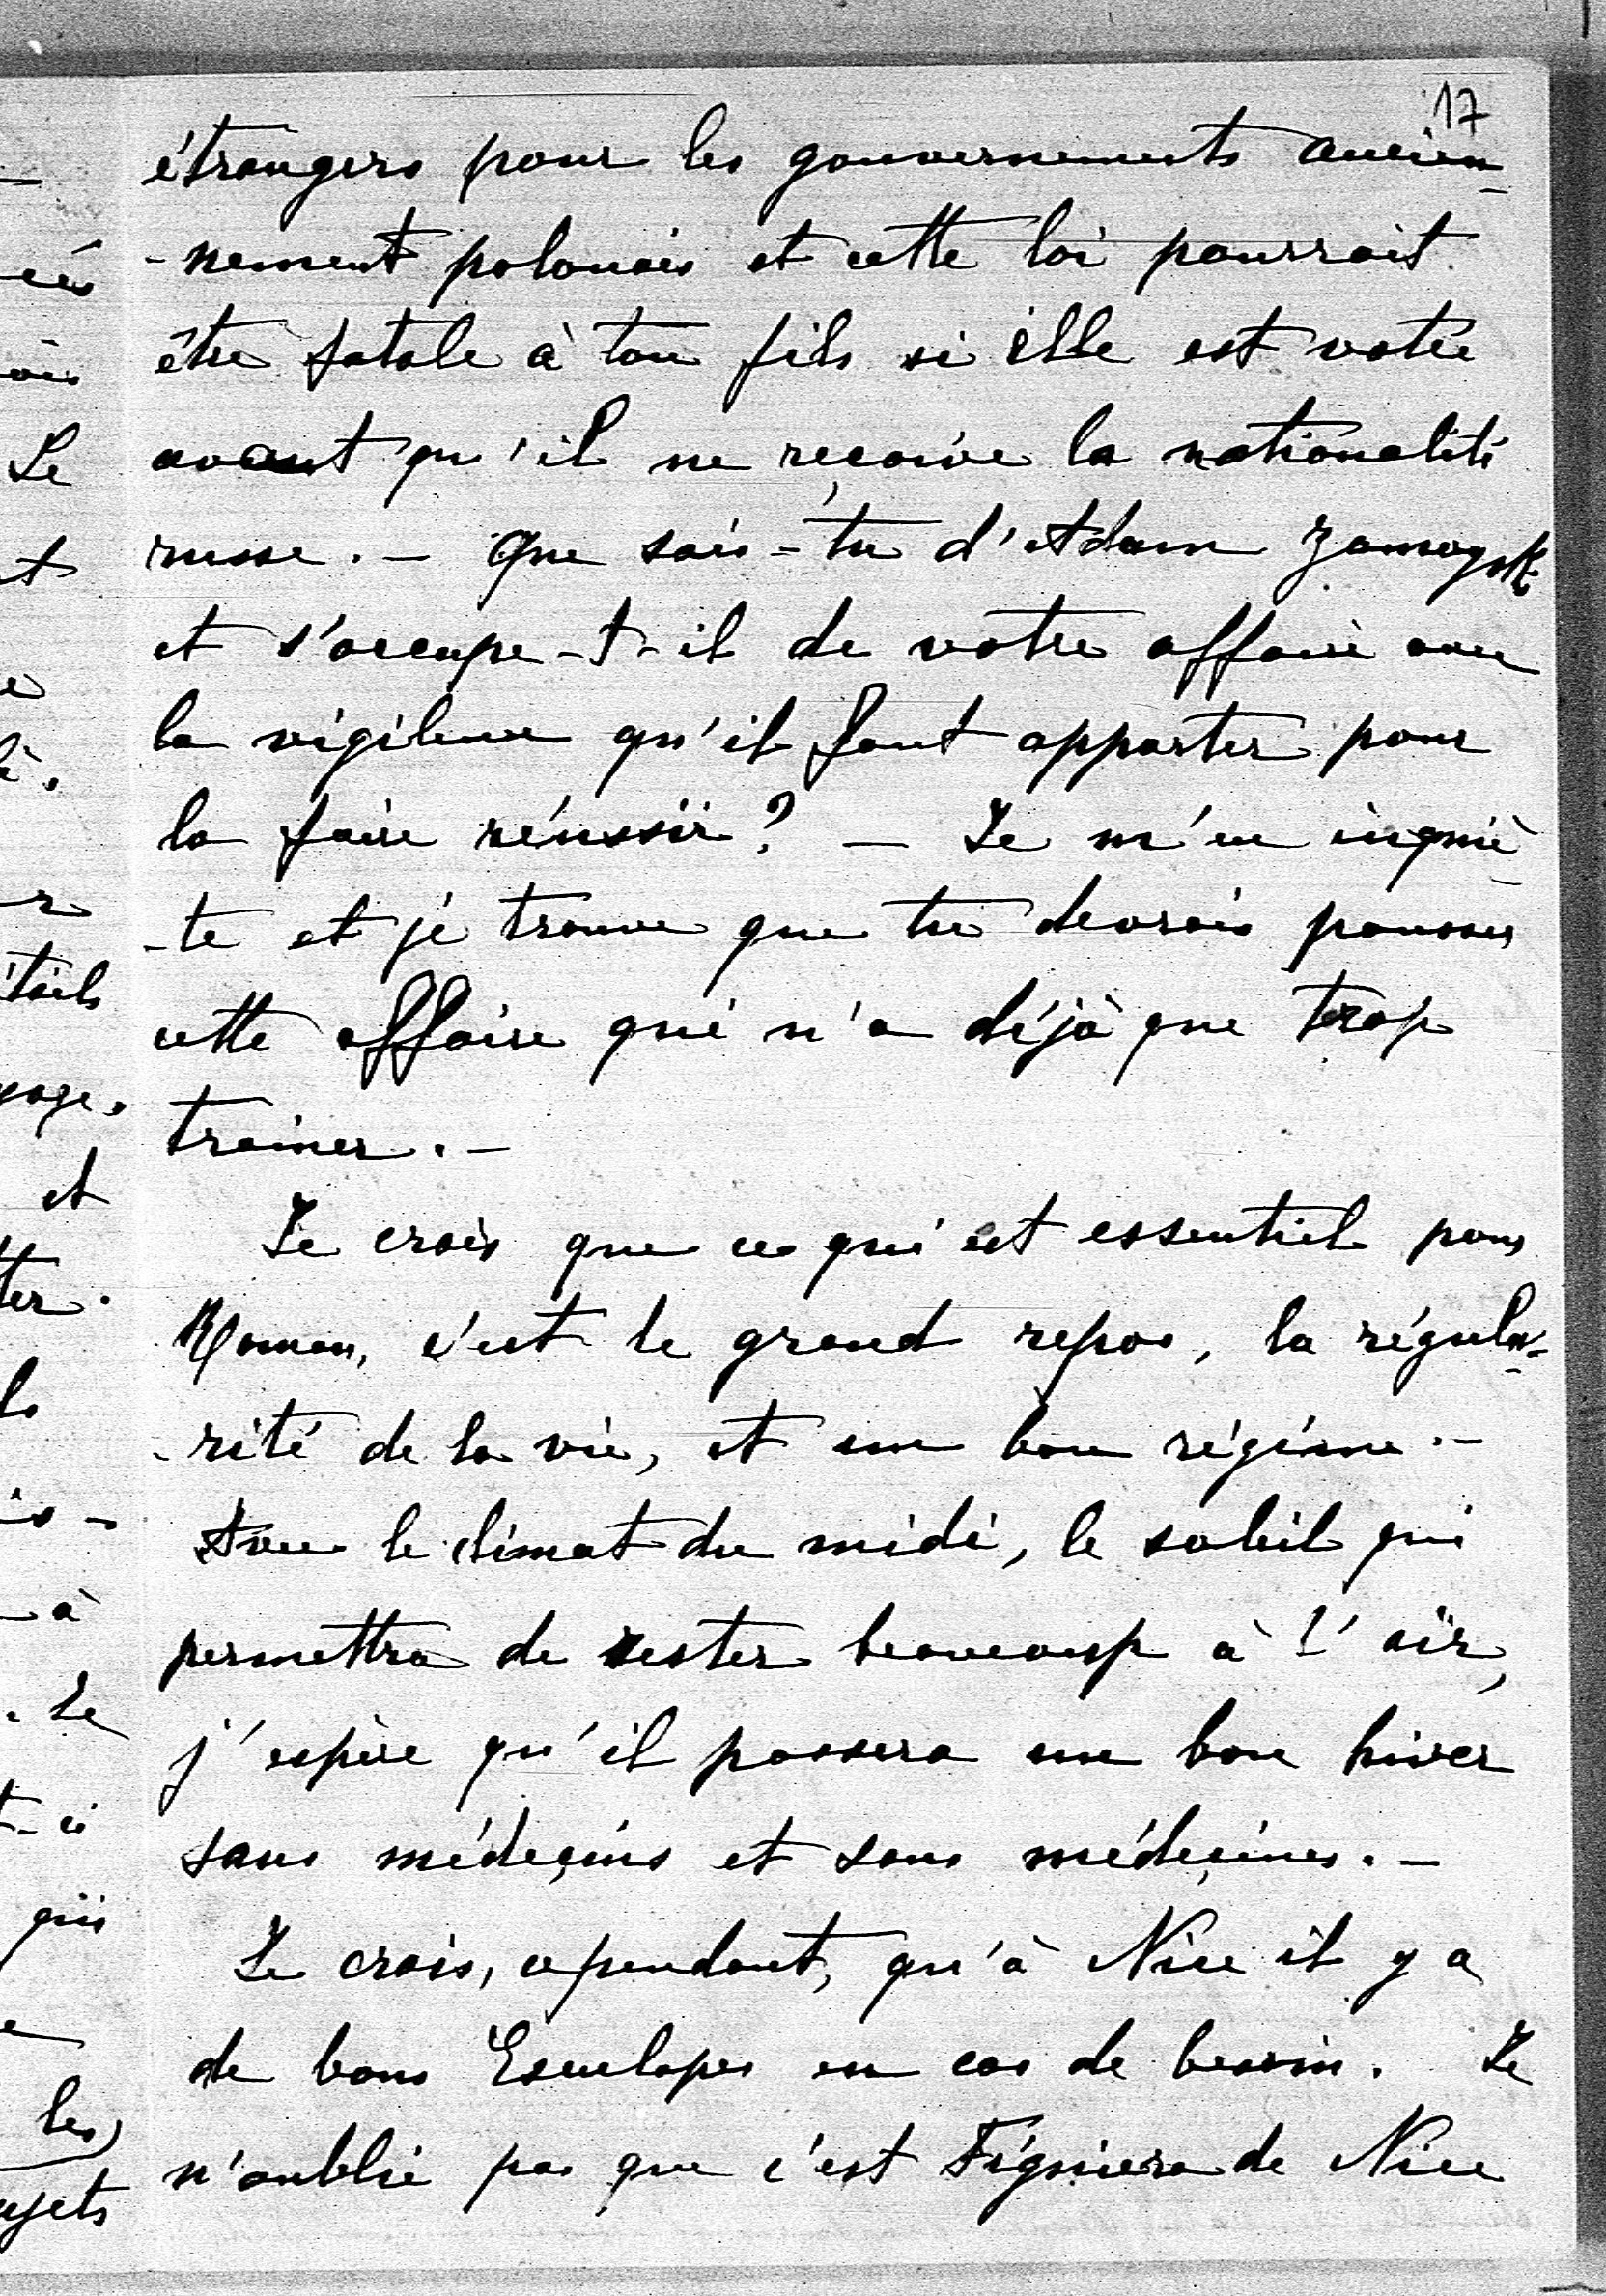 17
étrangers pour les gouvernements ancien-
-nement polonais et cette loi pourrait
être fatale à ton fils si elle est votée
avant qu'il ne reçoive la nationalité
russe. — Que sais-tu d'Adam Zamoyski
et s'occupe-t-il de votre affaire avec
la vigilence qu'il faut apporter pour
la faire réussir? — Je m'en inquiè-
-te et je trouve que tu devrais pousser
cette affaire qui n'a déjà que trop
trainer. —
Je crois que ce qui est essentiel pour
Roman, c'est le grand repos, la régula-
-rité de la vie, et un bon régime. —
Avec le climat du midi, le soleil qui
permettra de rester beaucoup à l'air,
j'espère qu'il passera un bon hiver
sans médeçins et sans médeçines. —
Je crois, cependant, qu'à Nice il y a
de bons Esculapes en cas de besoin. Je
n'oublie pas que c'est Figuiera de Nice